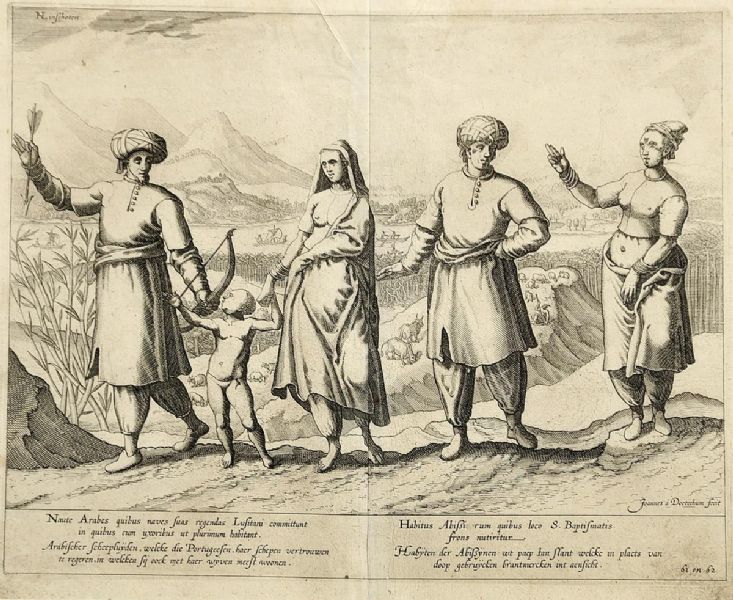 Nautæ Arabes quibus naves suas regendas Lusitani committunt
in quibus cum uxoribus ut plurimum habitant.
Arabischer scheepluyden, welcke die Portugeesen haer schepen vertrouwen
te regeren, in welcken sy oock met haer wyven meest woonen.
Habitus Abissi rum quibus loco S. Baptismatis
frons
Habyten der Abissynen wt pape Ian slant welcke in plaets van
doop gebruycken brantmercken int aensicht.
Joannes a Doetechum fecit
61 en 62